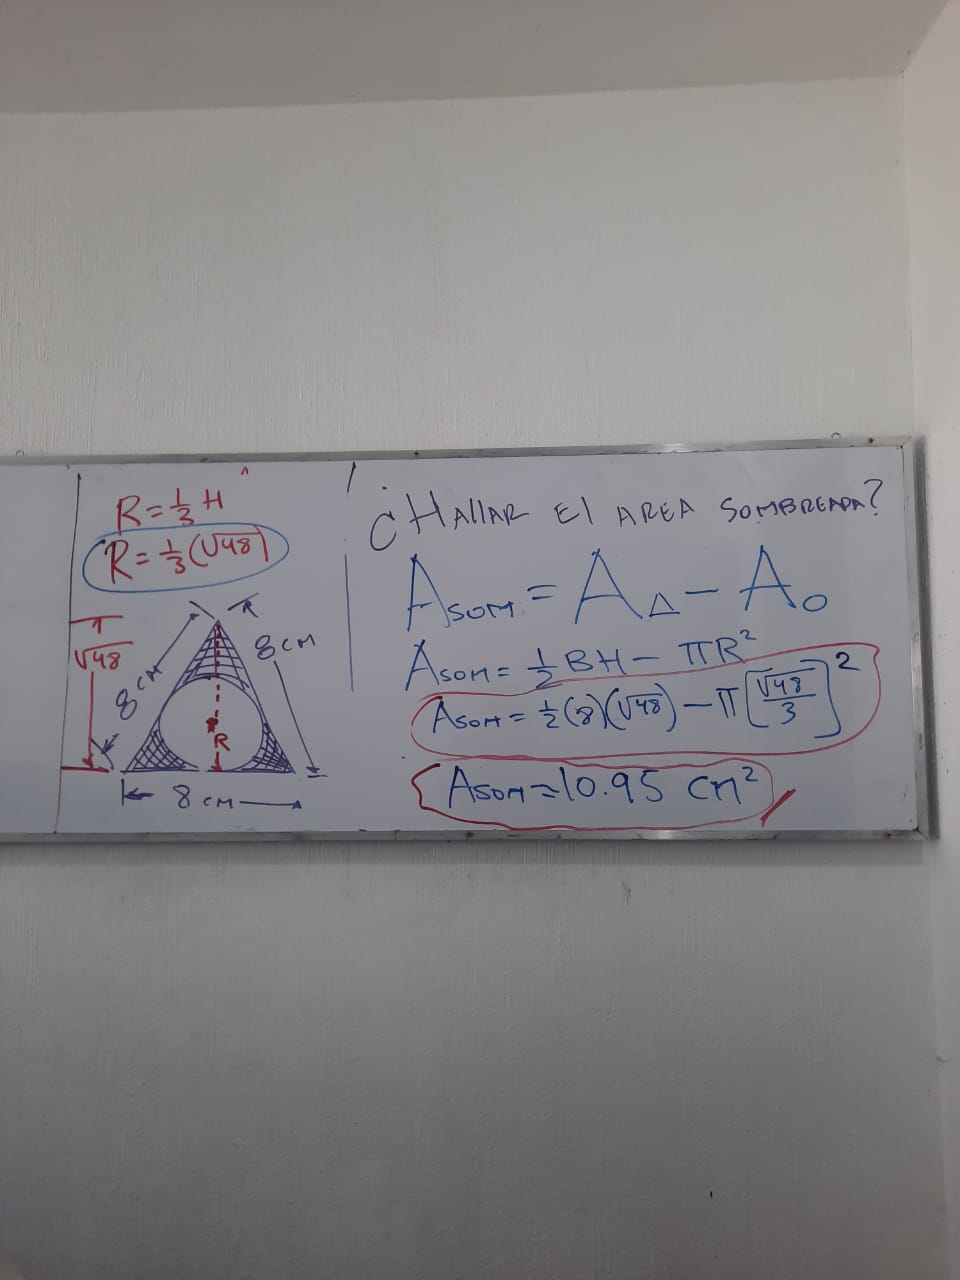 R = 1/3 H
R = 1/3 (√48)
√48
8 cm
8 cm
R
8 cm
¿Hallar El AREA SOMBREADA?
Asom = A△ - A○
Asom = 1/2 BH - πR²
Asom = 1/2 (8)(√48) - π[√48/3]²
Asom = 10.95 cm²